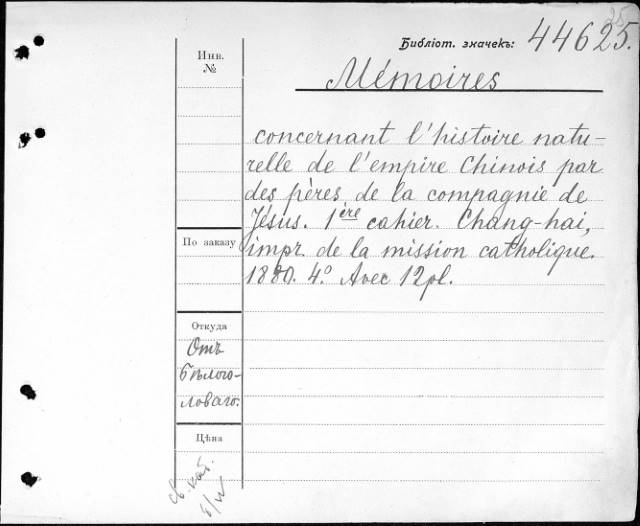 25
Библіот. значекъ: 44625.
Инв.
№
Mémoires
concernant l'histoire natu-
relle de l'empire Chinois par
des pères de la compagnie de
Jésus. 1ère cahier. Chang-hai,
По заказу
impr. de la mission catholique.
1880. 4º. Avec 12 pl.
Откуда
Отъ
Бѣлого-
ловаго.
Цѣна